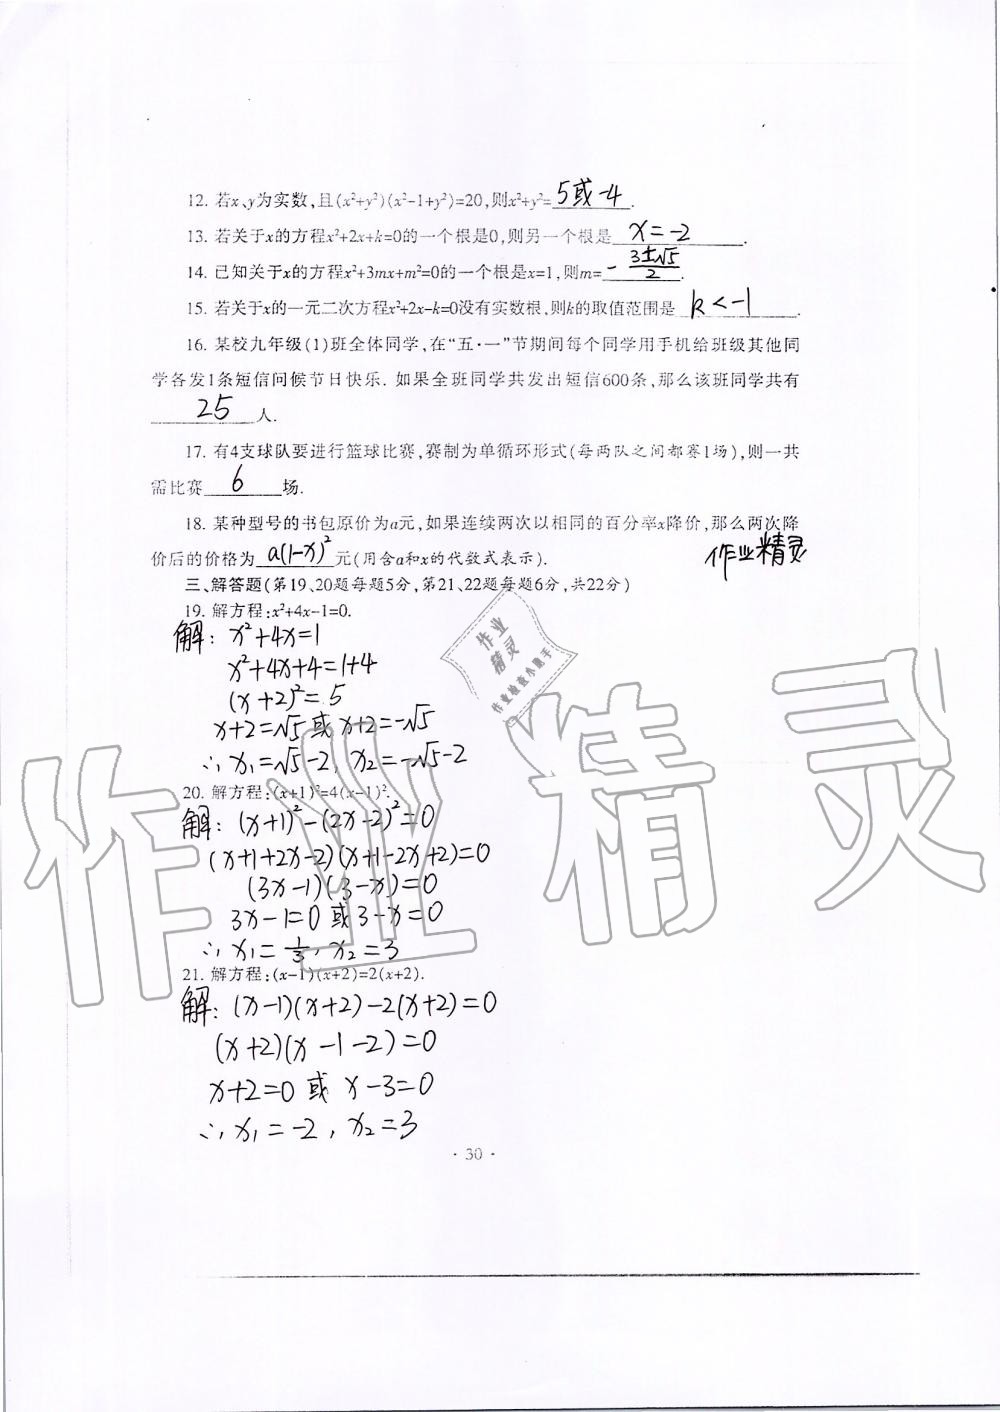 12. 若x、y为实数,且(x²+y²)(x²-1+y²)=20,则x²+y²=5或-4.
13. 若关于x的方程x²+2x+k=0的一个根是0,则另一个根是 x=-2 .
14. 已知关于x的方程x²+3mx+m²=0的一个根是x=1,则m= -(3±√5)/2 .
15. 若关于x的一元二次方程x²+2x-k=0没有实数根,则k的取值范围是 k<-1 .
16. 某校九年级(1)班全体同学,在“五·一”节期间每个同学用手机给班级其他同
学各发1条短信问候节日快乐. 如果全班同学共发出短信600条,那么该班同学共有
25 人.
17. 有4支球队要进行篮球比赛,赛制为单循环形式(每两队之间都赛1场),则一共
需比赛 6 场.
18. 某种型号的书包原价为a元,如果连续两次以相同的百分率x降价,那么两次降
价后的价格为 a(1-x)² 元(用含a和x的代数式表示).
作业精灵
三、解答题(第19、20题每题5分,第21、22题每题6分,共22分)
19. 解方程:x²+4x-1=0.
解: x²+4x=1
x²+4x+4=1+4
(x+2)²=5
x+2=√5 或 x+2=-√5
∴ x₁=√5-2, x₂=-√5-2
20. 解方程:(x+1)²=4(x-1)².
解: (x+1)²-(2x-2)²=0
(x+1+2x-2)(x+1-2x+2)=0
(3x-1)(3-x)=0
3x-1=0 或 3-x=0
∴ x₁=1/3, x₂=3
21. 解方程:(x-1)(x+2)=2(x+2).
解: (x-1)(x+2)-2(x+2)=0
(x+2)(x-1-2)=0
x+2=0 或 x-3=0
∴ x₁=-2, x₂=3
· 30 ·
作业精灵
作业
精灵
作业检查小助手